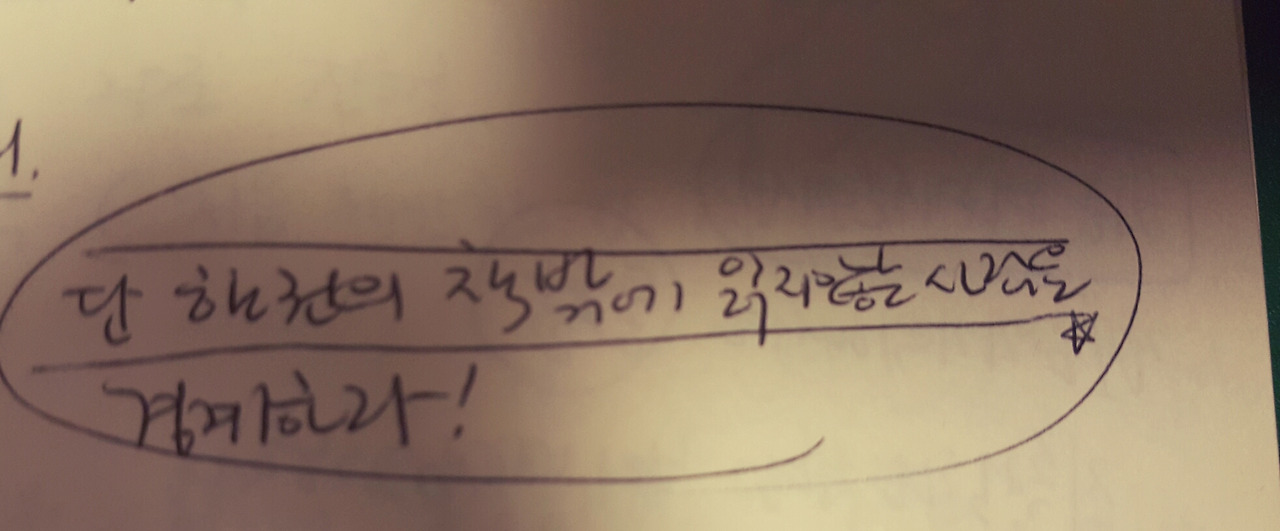 1.
단 한권의 책밖에 읽지않는 사람을
경계하라!